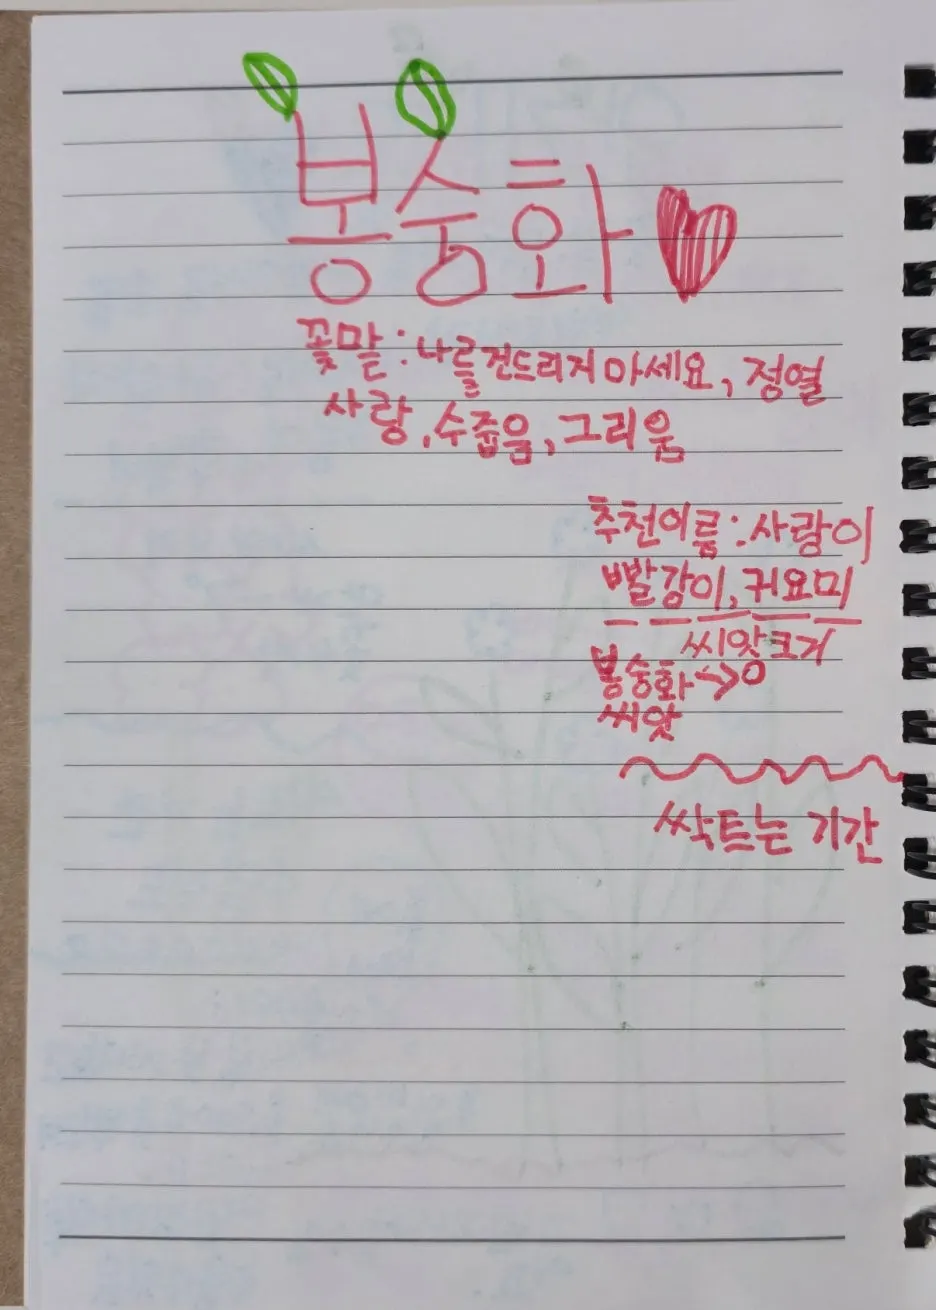 봉숭화
꽃말:나를건드리지마세요, 정열
사랑,수줍움,그리움
추천이름:사랑이
빨강이,귀요미
씨앗크기
봉숭화→
씨앗
싹트는 기간